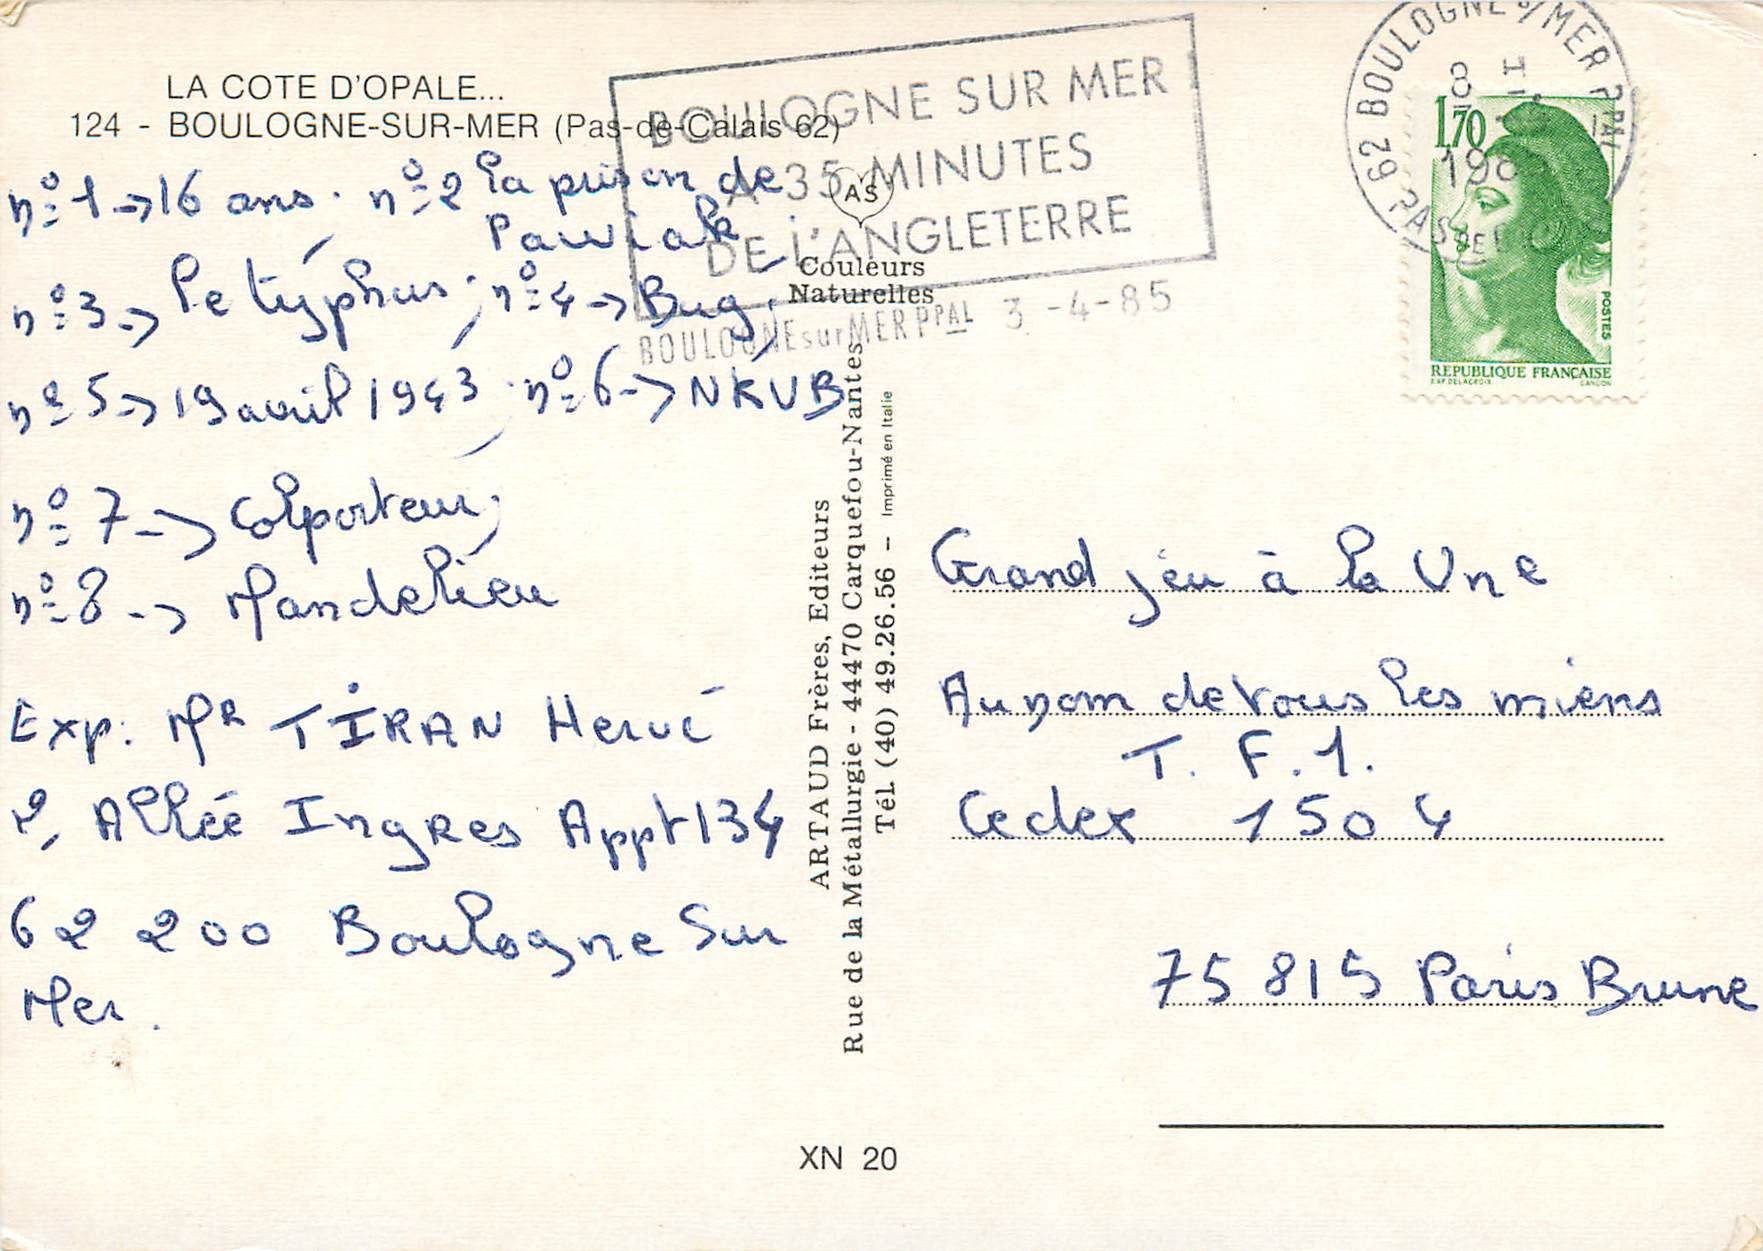 LA COTE D'OPALE...
124 - BOULOGNE-SUR-MER (Pas-de-Calais 62)
BOULOGNE SUR MER
A 35 MINUTES
DE L'ANGLETERRE
BOULOGNE sur MER PPAL 3-4-85
62 BOULOGNE S/MER PPAL
8 H
198
PAS DE
1,70
POSTES
REPUBLIQUE FRANÇAISE
EXP DELACROIX GANDON
AS
Couleurs
Naturelles
n° 1 → 16 ans. n° 2 la prison de
Pawiak;
n° 3 → le typhus; n° 4 → Bug;
n° 5 → 19 avril 1943; n° 6 → NKVB
n° 7 → Colporteur;
n° 8 → Mandelieu
Exp: Mr TIRAN Hervé
2, Allée Ingres Appt 134
62 200 Boulogne Sur
Mer.
ARTAUD Frères, Editeurs
Rue de la Métallurgie - 44470 Carquefou-Nantes
Tél. (40) 49.26.56 - Imprimé en Italie
Grand jeu à la Une
Au nom de tous les miens
T. F. 1.
Cedex 1504
75 815 Paris Brune
XN 20